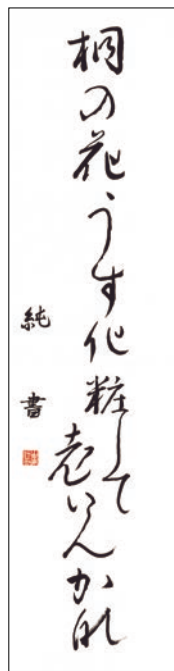 桐の花うす化粧して老いんかな
純書